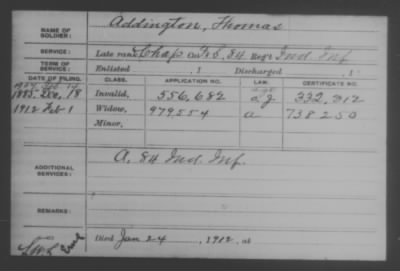 NAME OF SOLDIER: Addington, Thomas
SERVICE: Late rank Chap Co. F&S, 84 Reg't Ind Inf
TERM OF SERVICE: Enlisted , 1 Discharged , 1
DATE OF FILING. CLASS. APPLICATION NO. LAW. CERTIFICATE NO.
1885. Dec, 18 Invalid, 556,682 a g 332,312
1912 Feb 1 Widow, 979554 a 738250
Minor,
ADDITIONAL SERVICES: A, 84 Ind. Inf.
REMARKS:
Died Jan 24, 1912, at